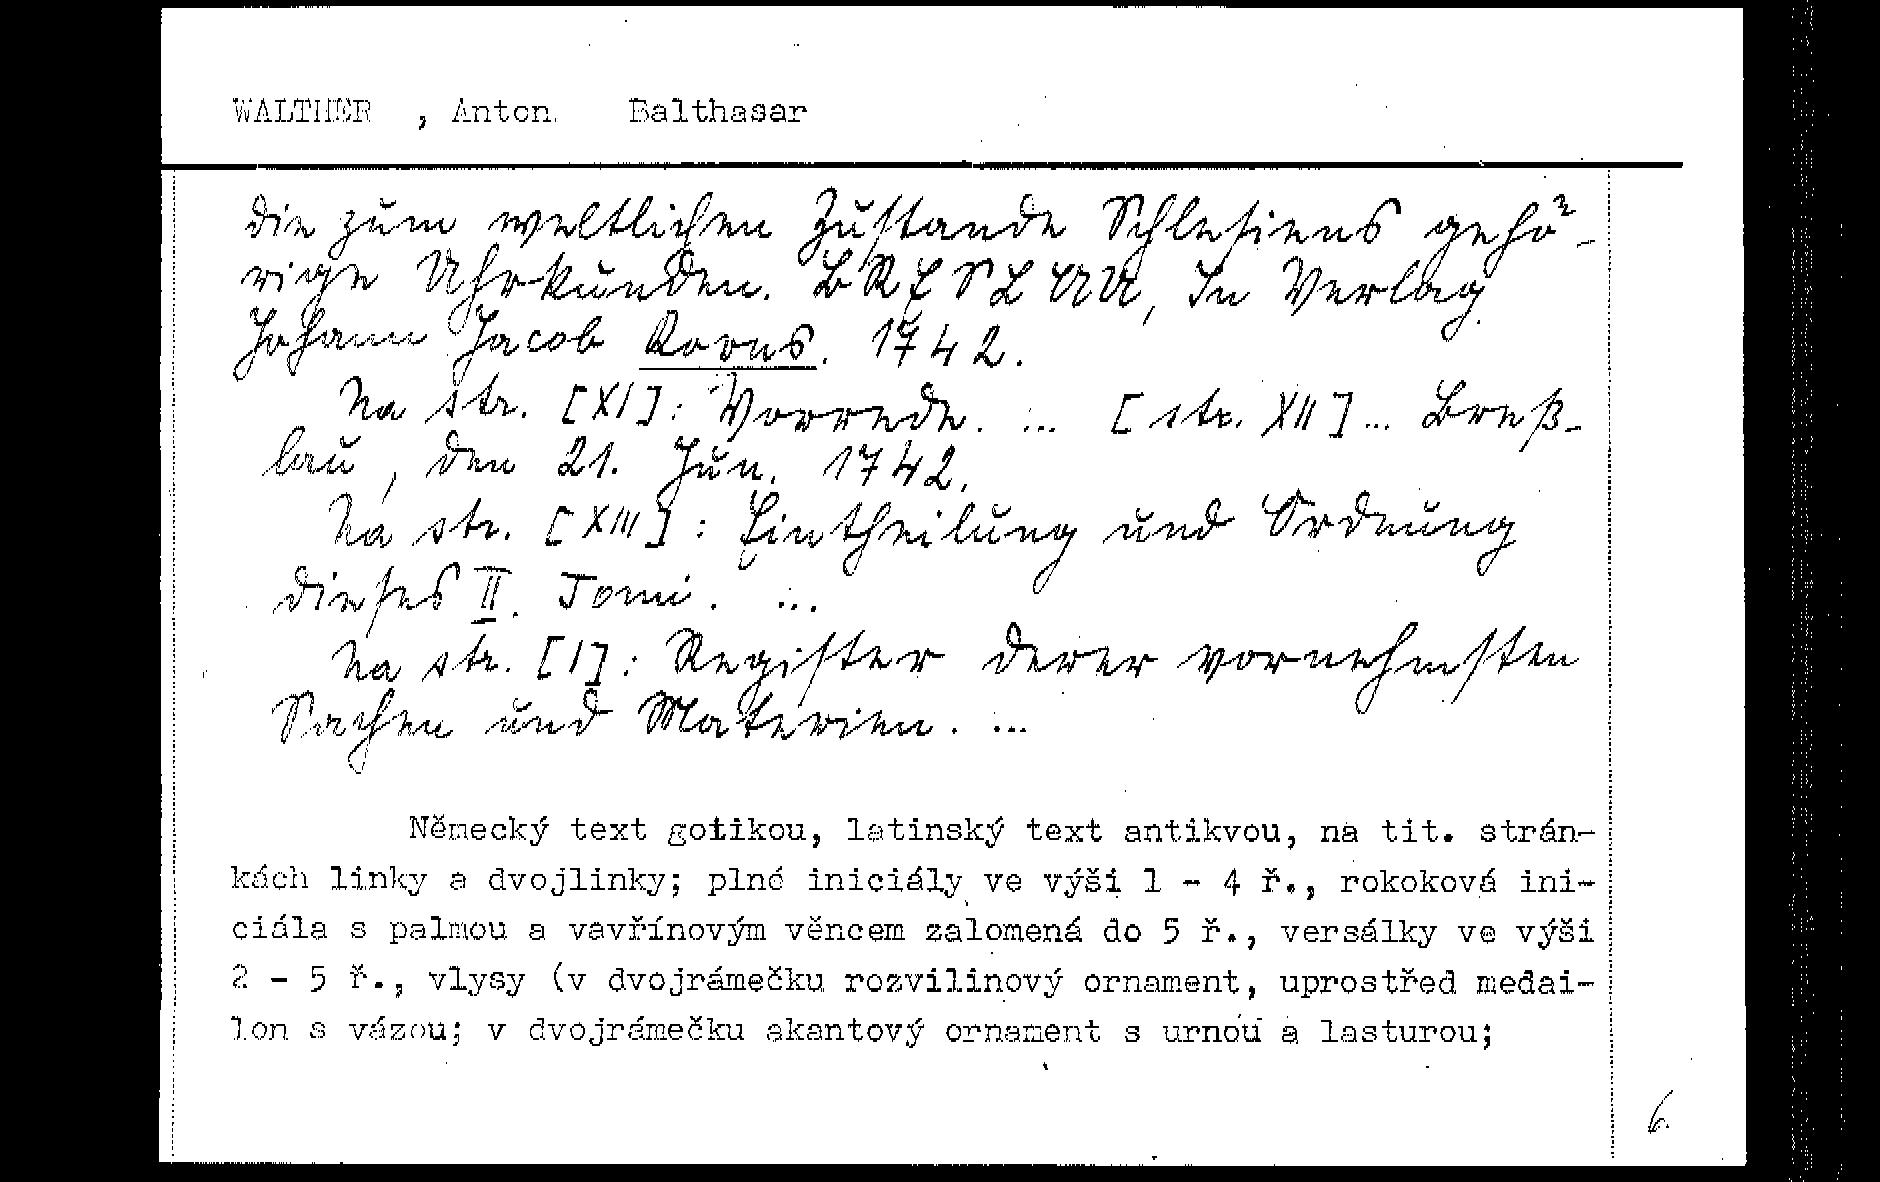 WALTHER , Anton Balthasar
die zum weltlichen Zustande Schlesiens gehö-
rige Uhrkunden. BRESLAU, In Verlag
Johann Jacob Korns. 1742.
Na str. [XI]: Vorrede. ... [str. XII] ... Breß-
lau, den 21. Jun. 1742.
Na str. [XIII]: Eintheilung und Ordnung
dieses II. Tomi. ...
Na str. [1]: Register derer vornehmsten
Sachen und Materien. ...
Německý text gotikou, latinský text antikvou, na tit. strán-
kách linky a dvojlinky; plné iniciály ve výši 1 - 4 ř., rokoková ini-
ciála s palmou a vavřínovým věncem zalomená do 5 ř., versálky ve výši
2 - 5 ř., vlysy (v dvojrámečku rozvilinový ornament, uprostřed medai-
lon s vázou; v dvojrámečku akantový ornament s urnou a lasturou;
6.